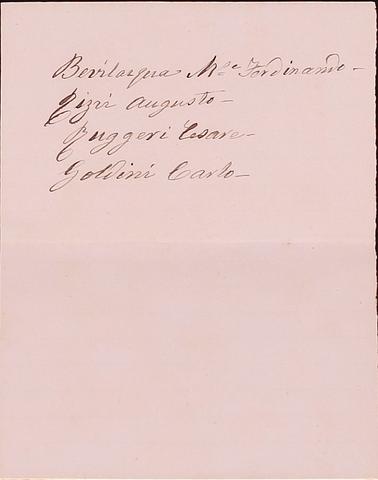 Bevilaqua M.se Ferdinando -
Rizzi Augusto -
Ruggeri Cesare -
Goldini Carlo -